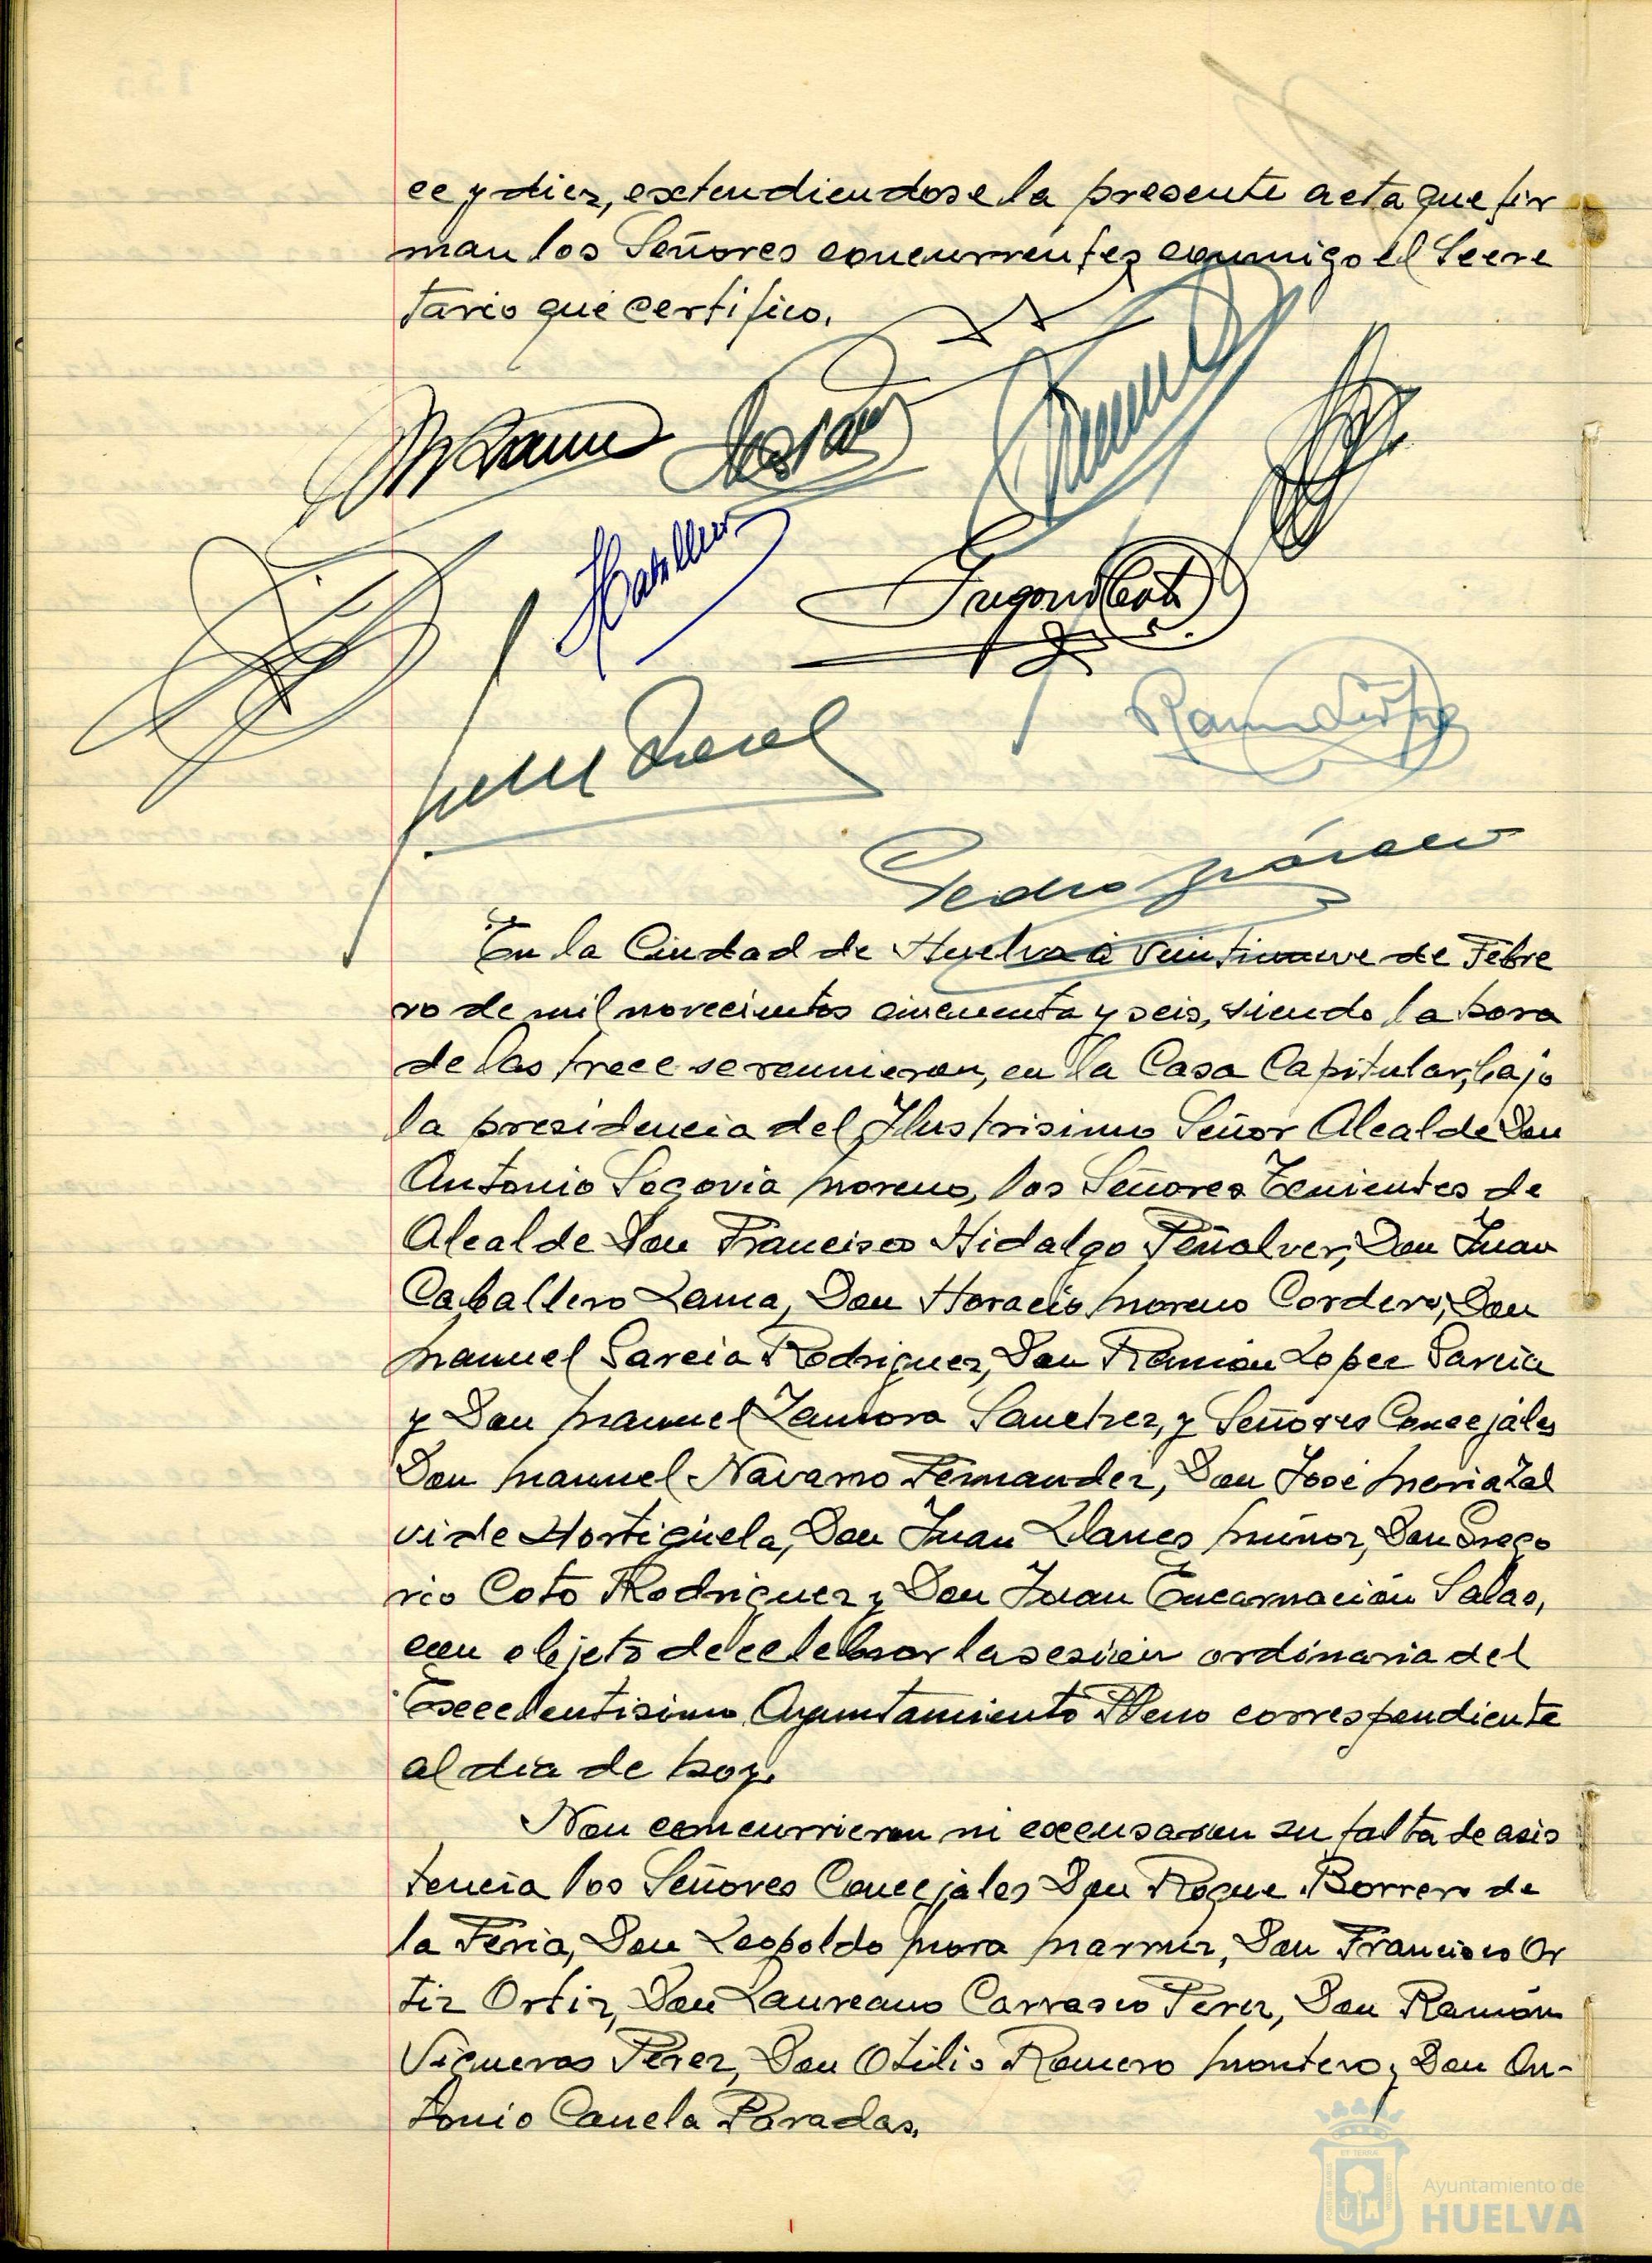 ce y diez, extendiendose la presente acta que fir
man los Señores concurrentes conmigo el Secre
tario que certifico.
Gregorio Coto
Pedro
En la Ciudad de Huelva a veintinueve de Febre
ro de mil novecientos cincuenta y seis, siendo la hora
de las trece se reunieron, en la Casa Capitular, bajo
la presidencia del Ilustrisimo Señor Alcalde Don
Antonio Segovia Moreno, los Señores Tenientes de
Alcalde Don Francisco Hidalgo Peñalver, Don Juan
Caballero Lama, Don Horacio Moreno Cordero, Don
Manuel Garcia Rodriguez, Don Ramón Lopez Garcia
y Don Manuel Zamora Sanchez, y Señores Concejales
Don Manuel Navarro Fernandez, Don José Maria Zal
vide Hortigüela, Don Juan Llanes Muñoz, Don Grego
rio Coto Rodriguez y Don Juan Encarnación Salas,
con objeto de celebrar la sesión ordinaria del
Excelentisimo Ayuntamiento Pleno correspondiente
al dia de hoy.
Non concurrieron ni excusaron su falta de asis
tencia los Señores Concejales Don Roque Borrero de
la Feria, Don Leopoldo Mora Don Francisco Or
tiz Ortiz, Don Laureano Carrasco Perez, Don Ramón
Vigueras Pérez, Don Otilio Romero Montero y Don An-
tonio Canela Paradas.
Ayuntamiento de
HUELVA